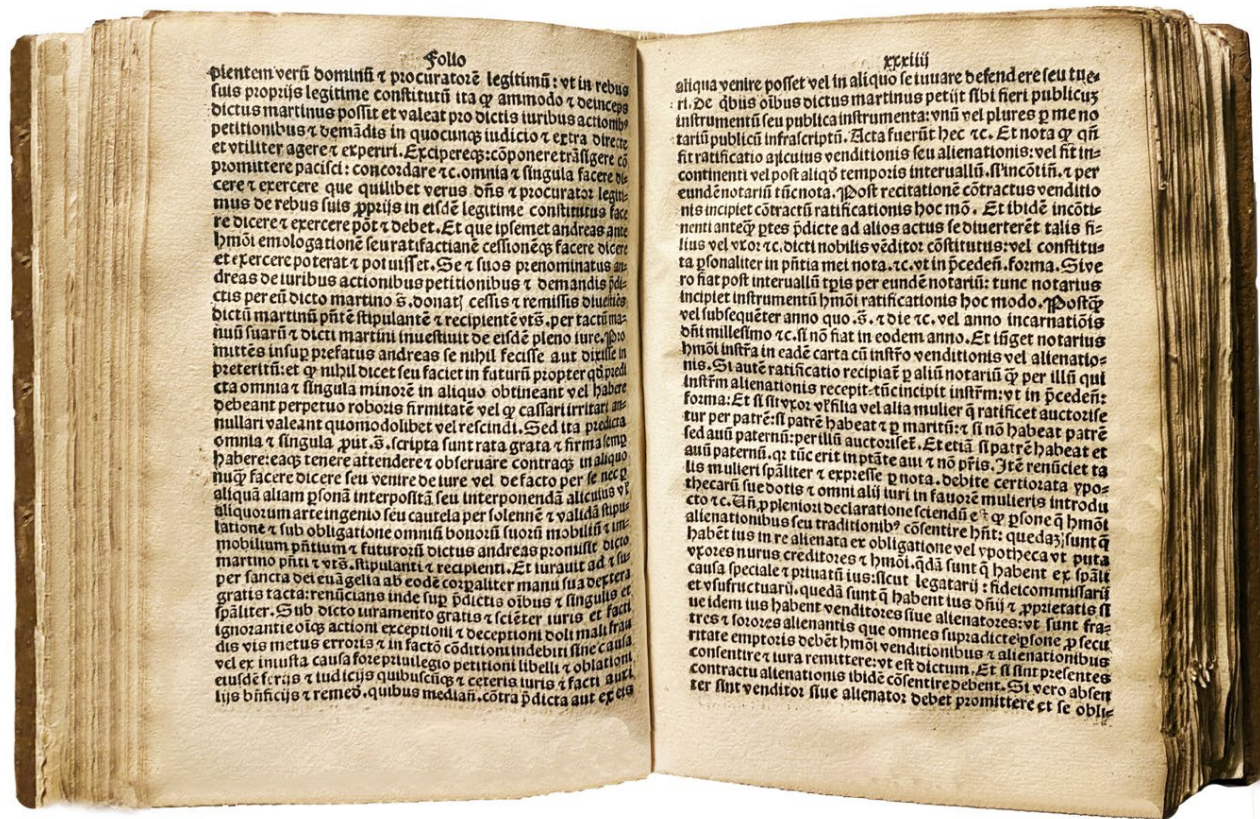 Folio
pientem verū dominū ⁊ procuratorē legitimū: vt in rebus
suis proprijs legitime constitutū ita ꝙ ammodo ⁊ deinceps
dictus martinus possit et valeat pro dictis iuribus actionibꝰ
petitionibus ⁊ demādis in quocunqꝫ iudicio ⁊ extra directe
et vtiliter agere ⁊ experiri. Excipereqꝫ: cōponere trāsigere cō
promittere pacisci: concordare ⁊c. omnia ⁊ singula facere di-
cere ⁊ exercere que quilibet verus dn̄s ⁊ procurator legiti-
mus de rebus suis ꝓprijs in eisdē legitime constitutus face
re dicere ⁊ exercere pōt ⁊ debet. Et que ipsemet andreas ante
hmōi emologationē seu ratifactianē cessionēqꝫ facere dicere
et exercere poterat ⁊ potuisset. Se ⁊ suos prenominatus an-
dreas de iuribus actionibus petitionibus ⁊ demandis p̄di-
ctis per eū dicto martino s̄. donat cessis ⁊ remissis diuestiēs
dictū martinū pn̄tē stipulantē ⁊ recipientē vts̄. per tactū ma-
nuū suarū ⁊ dicti martini inuestiuit de eisdē pleno iure. Pro
mittēs insuꝑ prefatus andreas se nihil fecisse aut dixisse in
preteritū: et ꝙ nihil dicet seu faciet in futurū propter qd̄ predi
cta omnia ⁊ singula minorē in aliquo obtineant vel habere
debeant perpetuo roboris firmitatē vel ꝙ cassari irritari an-
nullari valeant quomodolibet vel rescindi. Sed ita predicta
omnia ⁊ singula ꝓut .s̄. scripta sunt rata grata ⁊ firma semꝑ
habere: eaqꝫ tenere attendere ⁊ obseruare contraqꝫ in aliquo
nuqꝫ facere dicere seu venire de iure vel de facto per se nec ꝑ
aliquā aliam ꝑsonā interpositā seu interponendā alicuius vł
aliquorum arte ingenio seu cautela per solennē ⁊ validā stipu-
lationē ⁊ sub obligatione omniū bonorū suorū mobiliū ⁊ im-
mobilium pn̄tium ⁊ futurorū dictus andreas promisit dicto
martino pn̄ti ⁊ vts̄. stipulanti ⁊ recipienti. Et iurauit ad ⁊ su-
per sancta dei euāgelia ab eodē corꝑaliter manu sua dextera
gratis tacta: renūcians inde suꝑ p̄dictis oībus ⁊ singulis et
spāliter. Sub dicto iuramento gratis ⁊ sciēter iuris et facti
ignorantie oīqꝫ actioni exceptioni ⁊ deceptioni doli mali frau
dis vis metus erroris ⁊ in factō cōditioni indebiti sine causa
vel ex iniusta causa fore priuilegio petitioni libelli ⁊ oblationi
eiusdē ferijs ⁊ iudicijs quibuscūqꝫ ⁊ ceteris iuris ⁊ facti auxi
lijs bn̄ficijs ⁊ remed. quibus median̄. cōtra p̄dicta aut ex eis
xxxiiij
aliqua venire posset vel in aliquo se iuuare defendere seu tue-
ri. De qbiis oībus dictus martinus petijt sibi fieri publicuꝫ
instrumentū seu publica instrumenta: vnū vel plures ꝑ me no
tariū publicū infrascriptū. Acta fuerūt hec ⁊c. Et nota ꝙ qn̄
fit ratificatio alicuius venditionis seu alienationis: vel fit in-
continenti vel post aliqd̄ temporis interuallū. Si incōtin̄. ⁊ per
eundē notariū tūc nota. Post recitationē cōtractus venditio
nis incipiet cōtractū ratificationis hoc mō. Et ibidē incōti-
nenti anteqꝫ ꝑtes p̄dicte ad alios actus se diuerterēt talis fi-
lius vel vxor ⁊c. dicti nobilis vēditor cōstitutus: vel constitu-
ta ꝑsonaliter in pn̄tia mei nota. ⁊c. vt in p̄ceden̄. forma. Si ve
ro fiat post interuallū tꝑis per eundē notariū: tunc notarius
incipiet instrumentū hmōi ratificationis hoc modo. Postqꝫ
vel subsequēter anno quo .s̄. ⁊ die ⁊c. vel anno incarnatiōis
dn̄i millesimo ⁊c. si nō fiat in eodem anno. Et iūget notarius
hmōi instr̄a in eadē carta cū instr̄o venditionis vel alienatio-
nis. Si autē ratificatio recipiat̄ ꝑ aliū notariū ꝙ per illū qui
instr̄m alienationis recepit: tūc incipit instr̄m: vt in p̄ceden̄:
forma: Et si sit vxor vł filia vel alia mulier q̄ ratificet auctorise
tur per patrē: si patrē habeat ⁊ ꝑ maritū: ⁊ si nō habeat patrē
sed auū paternū: per illū auctoriset̄. Et etiā si patrē habeat et
auū paternū. qꝛ tūc erit in ptāte aui ⁊ nō pr̄is. Itē renūciet ta
lis mulieri spāliter ⁊ expresse ꝑ nota. debite certiorata ypo-
thecarū sue dotis ⁊ omni alij iuri in fauorē mulieris introdu
cto ⁊c. Un̄ ꝓ pleniori declaratione sciendū est ꝙ ꝑsone q̄ hmōi
alienationibus seu traditionibꝰ cōsentire hn̄t: quedaꝫ sunt q̄
habēt ius in re alienata ex obligatione vel ypotheca vt puta
vxores nurus creditores ⁊ hmōi. qdā sunt q̄ habent ex spāli
causa speciale ⁊ priuatū ius: sicut legatarij: fideicommissarij
et vsufructuarij. quedā sunt q̄ habent ius dn̄ij ⁊ ꝓprietatis si
ue idem ius habent venditores siue alienatores: vt sunt fra-
tres ⁊ sorores alienantis que omnes supradicte ꝑsone ꝓ secu
ritate emptoris debēt hmōi venditionibus ⁊ alienationibus
consentire ⁊ iura remittere: vt est dictum. Et si sint presentes
contractu alienationis ibidē cōsentire debent. Si vero absen
ter sint venditor siue alienator debet promittere et se obli-